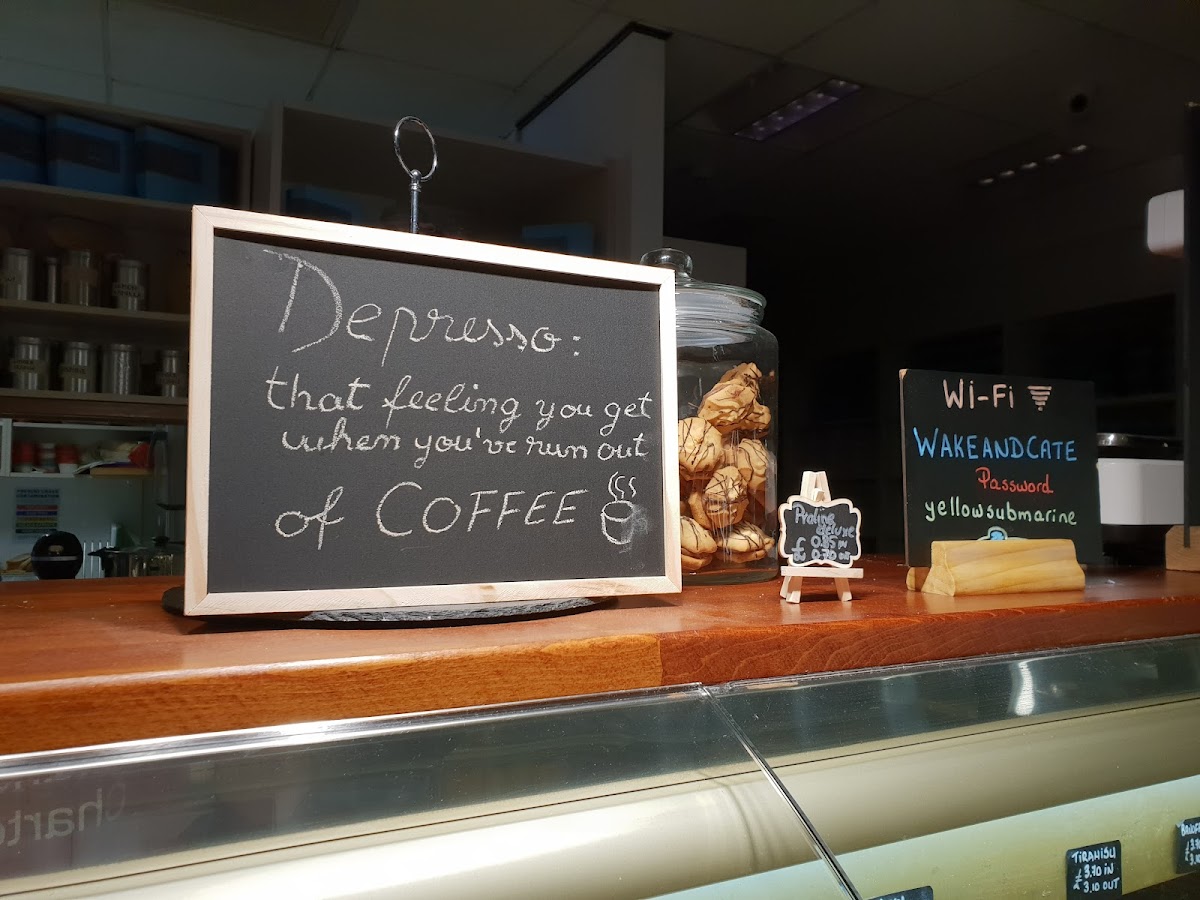 Depresso:
that feeling you get
when you've run out
of COFFEE
Praline
deluxe
£ 0.85 IN
£ 0.70 OUT
Wi-Fi
WAKEANDCATE
Password
yellowsubmarine
TIRAMISU
£3.70 IN
£3.10 OUT